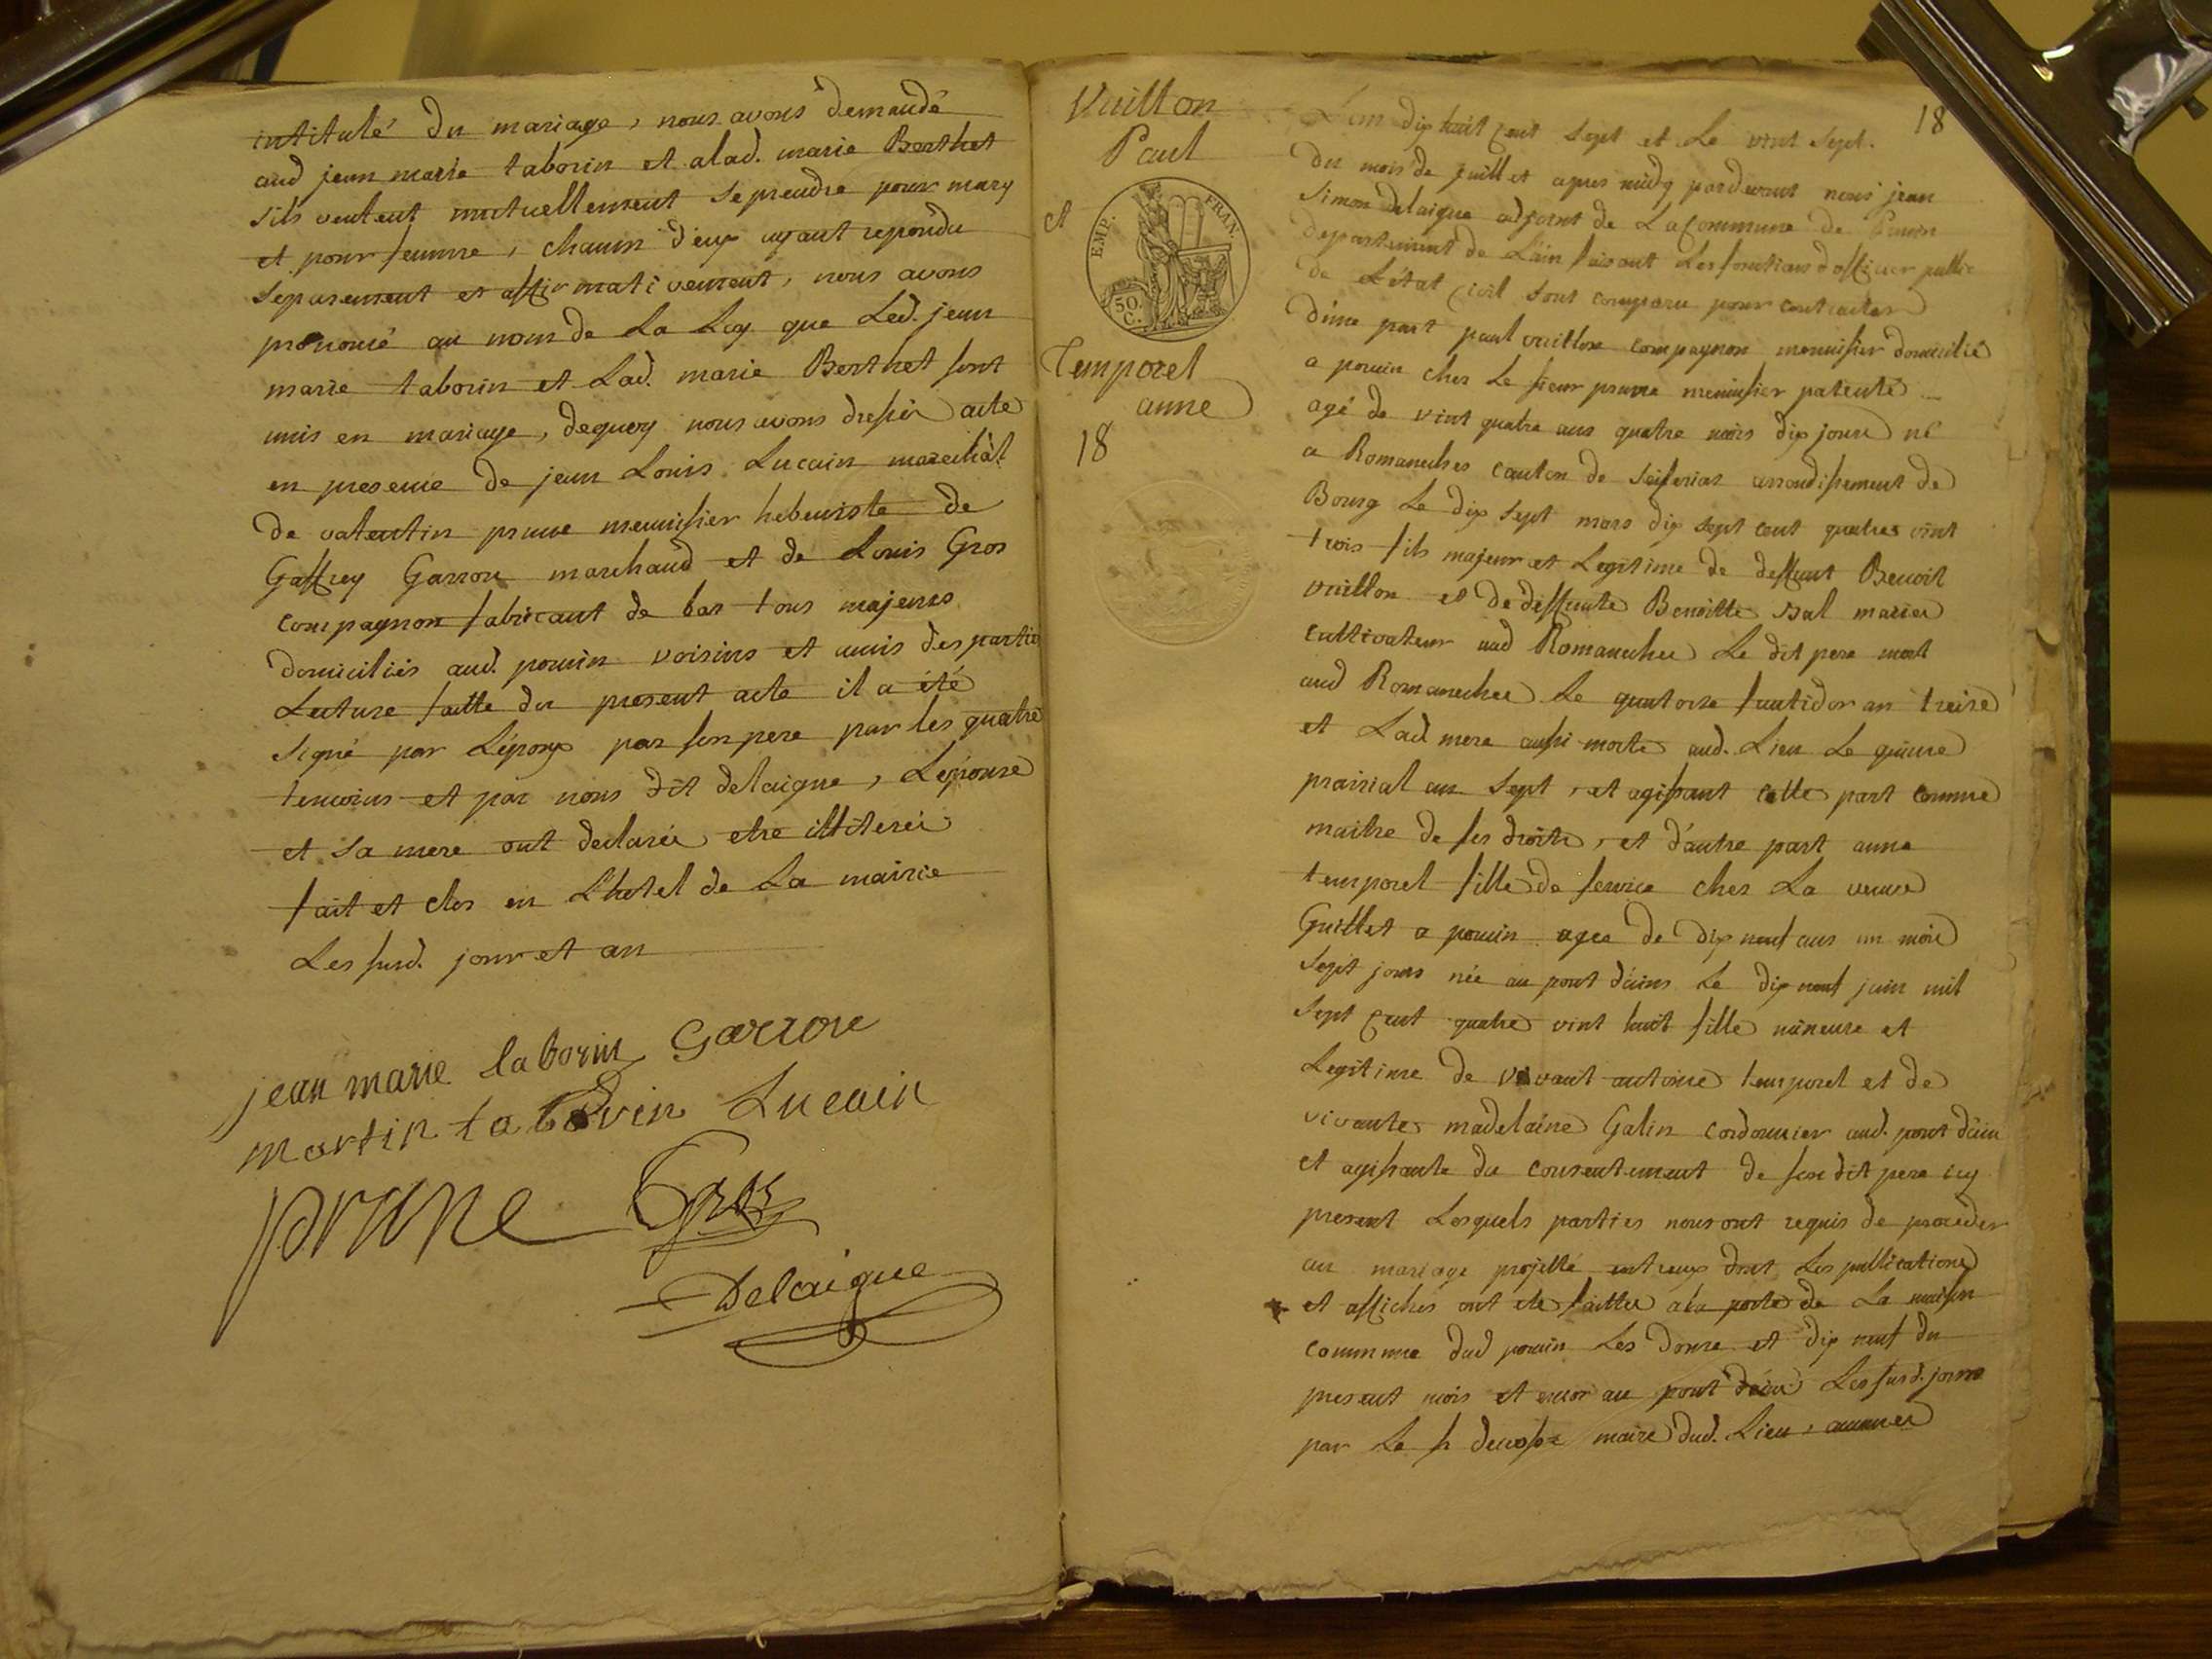 intitulé du mariage, nous avons demandé
aud jean marie taborin et alad. marie Berthet
sils veulent mutuellement se prendre pour mary
et pour femme, chacun d'eux ayant repondu
separement et affirmativement, nous avons
prononcé au nom de La Loy que Led. jean
marie taborin et Lad. marie Berthet sont
unis en mariage, dequoy nous avons dressé acte
en presence de jean Louis Lucain
de valentin prune menuisier hebeniste de
Gaffrey Garron marchand et de Louis Gros
compagnon fabricant de bas tous majeurs
domiciliés aud. poncin voisins et amis des partie
Lecture faitte du present acte il a été
signé par L'époux par son pere par les quatre
temoins et par nous dit delaigue, Lepouse
et sa mere ont declarée etre illiterei
fait et clos en L'hotel de La mairie
Les susd. jour et an
jean marie taborin Garron
martin taborin Lucain
prune Gros
Delaigue
Vuillon
Paul
et
EMP. FRAN.
50 C.
Temporel
anne
18
18
L'an dix huit cent sept et Le vint sept.
du mois de juillet apres midy pardevant nous jean
Simon delaigue adjoint de La Commune de Poncin
departement de L'ain faisant Les fonctions d'officier public
de L'état civil sont comparu pour contracter
d'une part paul vuillon compagnon menuisier domicilié
a poncin ches Le sieur prune menuisier patenté
agé de vint quatre ans quatre mois dix jours né
a Romaneches canton de arrondissement de
Bourg Le dix sept mars dix sept cent quatres vint
trois fils majeur et Legitime de deffunt Benoit
vuillon et de deffunte Benoitte mariée
cultivateur aud Romaneches Le dit pere mort
aud Romaneches Le quatorze fructidor an treize
et Lad mere aussi morte aud. Lieu Le quinze
prairial an sept, et agissant cette part comme
maitre de ses droits, et d'autre part anne
temporel fille de service ches La veuve
Guillet a poncin agée de dix neuf ans un mois
sept jours née au pont d'ains Le dix neuf juin mil
sept cent quatre vint huit fille mineure et
Legitime de vivant antoine temporel et de
vivante madelaine Galin cordonnier aud. pont d'ain
et agissante du consentement de son dit pere icy
present Lesquels parties nous ont requis de proceder
au mariage projetté entreux dont Les publications
et affiches ont eté faittes a la porte de La maison
commune dud poncin Les douze et dix neuf du
present mois et encor au pont d'ain Les susd. jours
par Le maire dud. Lieu,